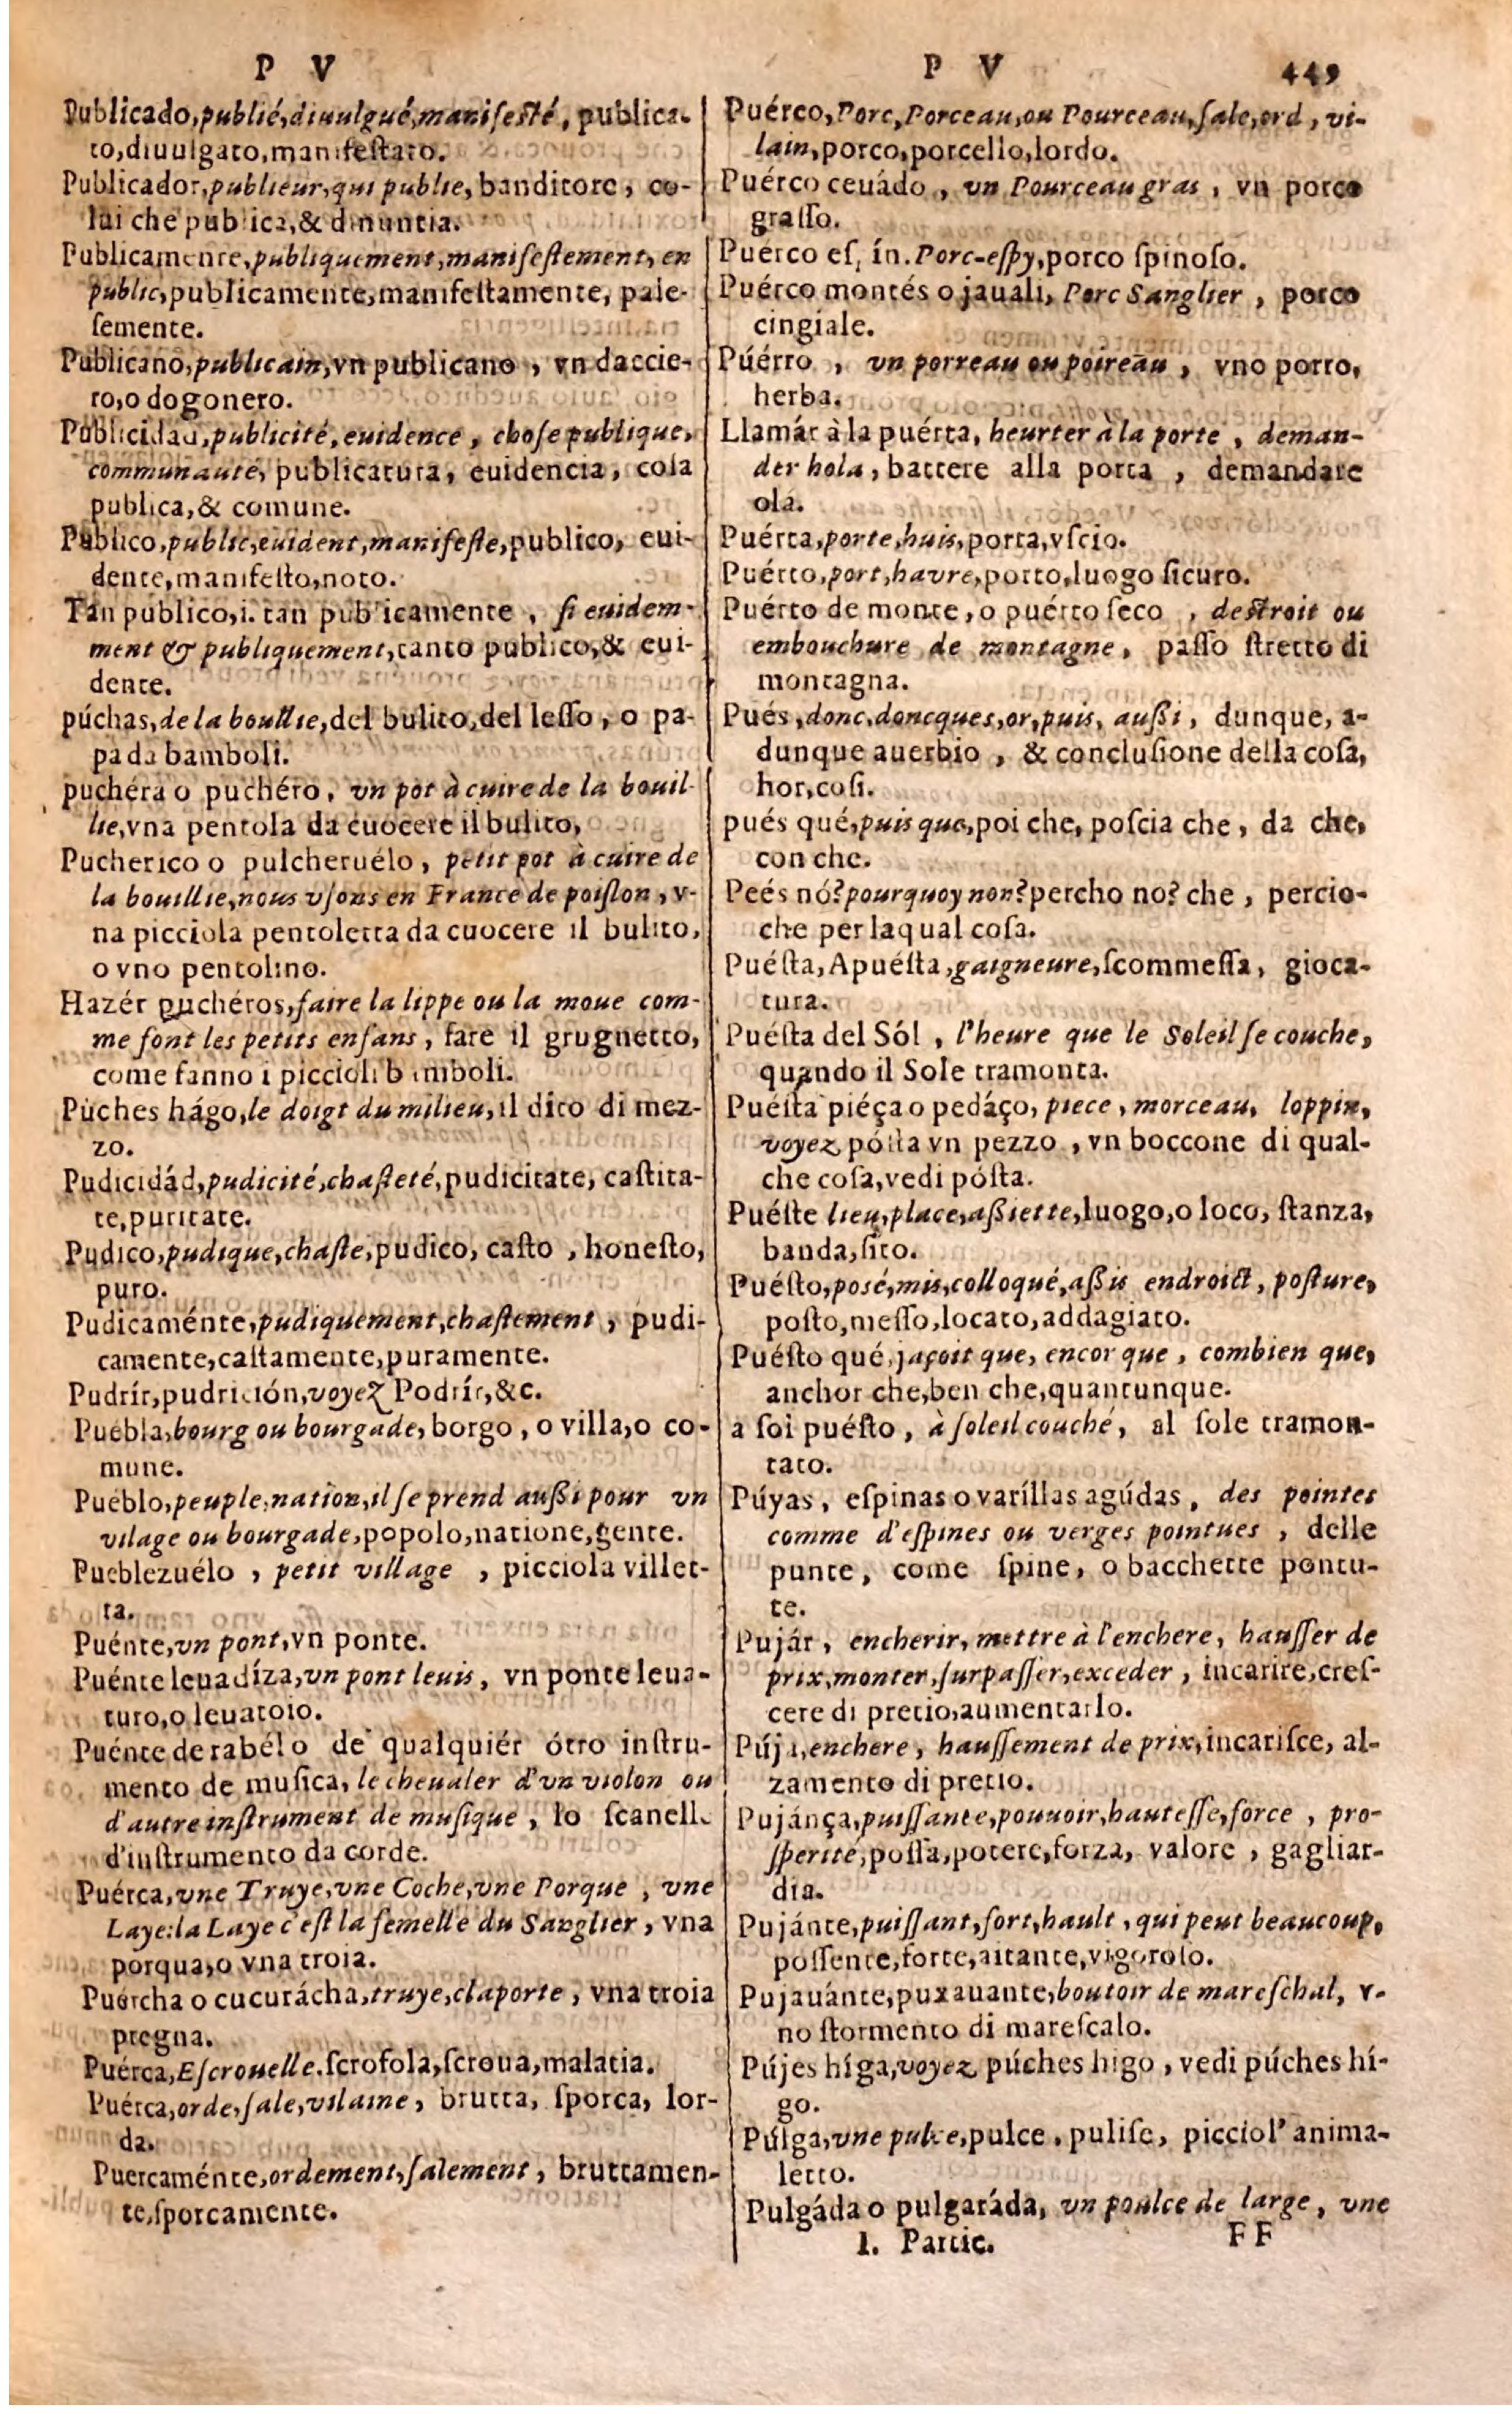 P V
Publicado, publié, diuulgué, manifesté, publica-
to, diuulgato, manifestato.
Publicador, publieur, qui publie, banditore, co-
lui che publica, & dinuntia.
Publicamente, publiquement, manifestement, en
public, publicamente, manifestamente, pale-
semente.
Publicano, publicain, vn publicano, vn daccie-
ro, o dogonero.
Publicidad, publicité, euidence, chose publique,
communauté, publicatura, euidencia, cosa
publica, & comune.
Publico, public, euident, manifeste, publico, eui-
dente, manifesto, noto.
Tan público, i. tan publicamente, si euidem-
ment & publiquement, tanto publico, & eui-
dente.
púchas, de la boullie, del bulito, del lesso, o pa-
pa da bamboli.
puchéra o puchéro, vn pot à cuire de la bouil-
lie, vna pentola da cuocere il bulito,
Pucherico o pulcheruélo, petit pot à cuire de
la bouillie, nous vsons en France de poislon, v-
na picciola pentoletta da cuocere il bulito,
o vno pentolino.
Hazér puchéros, faire la lippe ou la moue com-
me font les petits enfans, fare il grugnetto,
come fanno i piccioli bamboli.
Púches hágo, le doigt du milieu, il dito di mez-
zo.
Pudicidád, pudicité, chasteté, pudicitate, castita-
te, puritate.
Pudico, pudique, chaste, pudico, casto, honesto,
puro.
Pudicaménte, pudiquement, chastement, pudi-
camente, castamente, puramente.
Pudrír, pudrición, voyez Podrír, &c.
Puébla, bourg ou bourgade, borgo, o villa, o co-
mune.
Puéblo, peuple, nation, il se prend außi pour vn
vilage ou bourgade, popolo, natione, gente.
Pueblezuélo, petit village, picciola villet-
ta.
Puénte, vn pont, vn ponte.
Puénte leuadíza, vn pont leuis, vn ponte leua-
turo, o leuatoio.
Puénte de rabél o de qualquiér ótro instru-
mento de musica, le cheualer d'vn violon ou
d'autre instrument de musique, lo scanello
d'instrumento da corde.
Puérca, vne Truye, vne Coche, vne Porque, vne
Laye: la Laye c'est la femelle du Sanglier, vna
porqua, o vna troia.
Puercha o cucurácha, truye, claporte, vna troia
pregna.
Puérca, Escrouelle. scrofola, scroua, malatia.
Puérca, orde, sale, vilaine, brutta, sporca, lor-
da.
Puercaménte, ordement, salement, bruttamen-
te, sporcamente.
P V 449
Puérco, Porc, Porceau, ou Pourceau, sale, ord, vi-
lain, porco, porcello, lordo.
Puérco ceuádo, vn Pourceau gras, vn porco
grasso.
Puérco es, ín. Porc-espy, porco spinoso.
Puérco montés o jauali, Porc Sanglier, porco
cingiale.
Púérro, vn porreau ou poireau, vno porro,
herba.
Llamár à la puérta, heurter à la porte, deman-
der hola, battere alla porta, demandare
olá.
Puérta, porte, huis, porta, vscio.
Puérto, port, havre, porto, luogo sicuro.
Puérto de monte, o puérto seco, destroit ou
embouchure de montagne, passo stretto di
montagna.
Pués, donc, doncques, or, puis, außi, dunque, a-
dunque auerbio, & conclusione della cosa,
hor, cosi.
pués qué, puis que, poi che, poscia che, da che,
con che.
Peés nó? pourquoy non? percho no? che, percio-
che per laqual cosa.
Puésta, Apuésta, gaigneure, scommessa, gioca-
tura.
Puésta del Sól, l'heure que le Soleil se couche,
quando il Sole tramonta.
Puésta piéça o pedáço, piece, morceau, loppin,
voyez pósta vn pezzo, vn boccone di qual-
che cosa, vedi pósta.
Puéste lieu, place, aßiette, luogo, o loco, stanza,
banda, sito.
Puésto, posé, mis, colloqué, aßis endroict, posture,
posto, messo, locato, addagiato.
Puésto qué, jaçoit que, encor que, combien que,
anchor che, ben che, quantunque.
a sol puésto, à soleil couché, al sole tramon-
tato.
Púyas, espinas o varíllas agúdas, des pointes
comme d'espines ou verges pointues, delle
punte, come spine, o bacchette pontu-
te.
Pujár, encherir, mettre à l'enchere, hausser de
prix, monter, surpasser, exceder, incarire, cres-
cere di pretio, aumentarlo.
Púja, enchere, haussement de prix, incarisce, al-
zamento di pretio.
Pujánça, puissante, pouuoir, hautesse, force, pro-
sperité, possa, potere, forza, valore, gagliar-
dia.
Pujánte, puissant, fort, hault, qui peut beaucoup,
possente, forte, aitante, vigoroso.
Pujauánte, puxauante, boutoir de mareschal, v-
no stormento di marescalo.
Pújes híga, voyez púches higo, vedi púches hí-
go.
Púlga, vne pulce, pulce, pulise, picciol' anima-
letto.
Pulgáda o pulgaráda, vn poulce de large, vne
I. Partie. FF